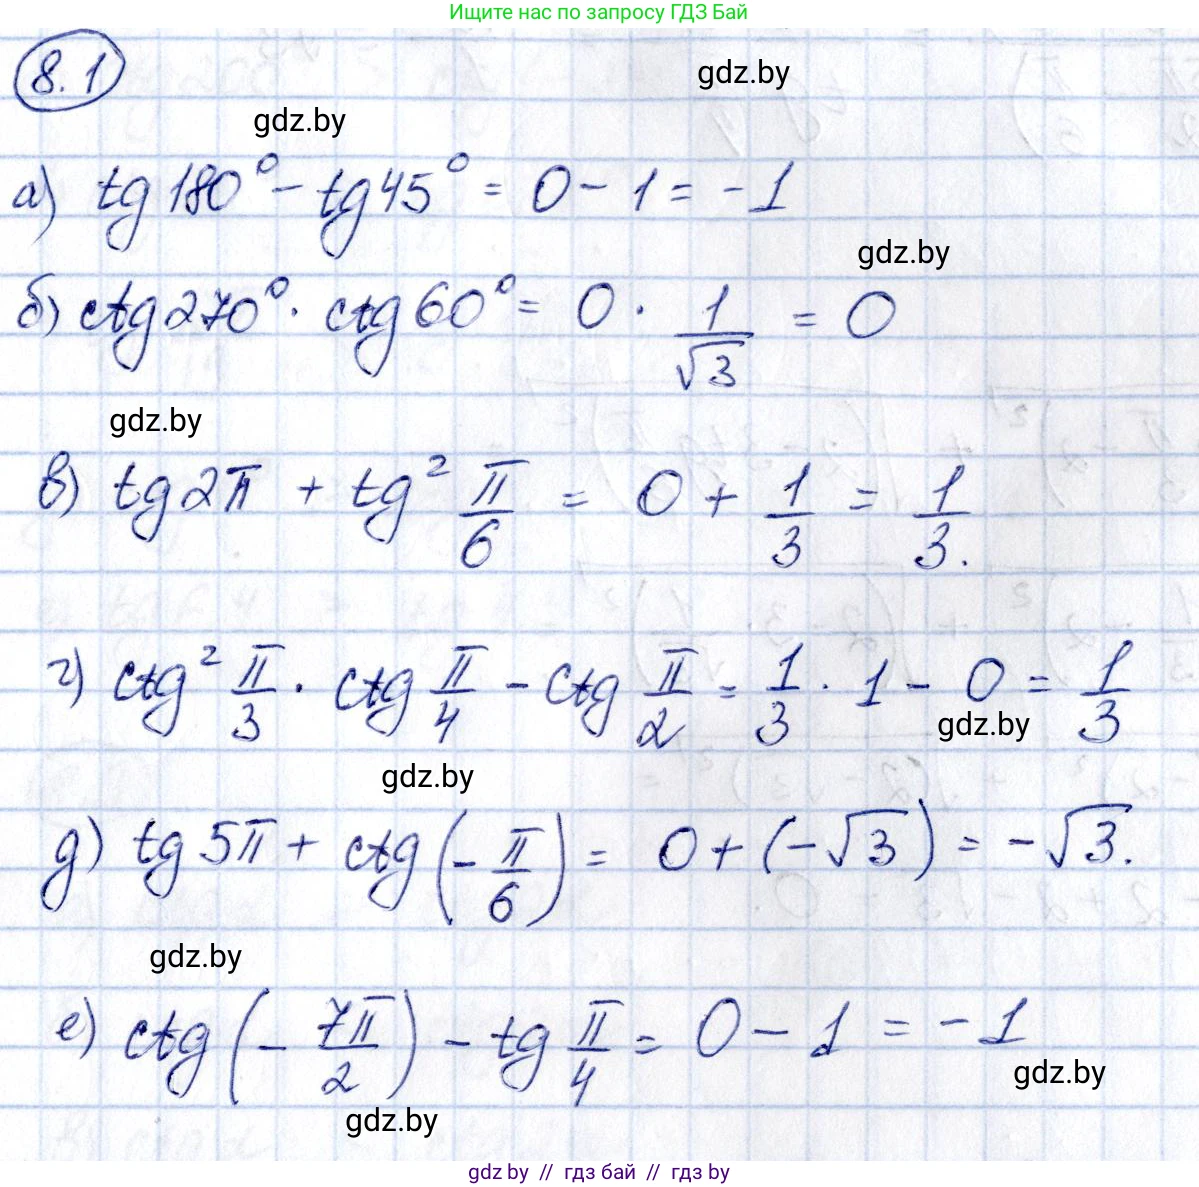 Ищите нас по запросу ГДЗ Бай
8.1
gdz.by
gdz.by
а) tg 180° - tg 45° = 0 - 1 = -1
gdz.by
б) ctg 270° · ctg 60° = 0 · 1/√3 = 0
gdz.by
в) tg 2π + tg² π/6 = 0 + 1/3 = 1/3.
г) ctg² π/3 · ctg π/4 - ctg π/2 = 1/3 · 1 - 0 = 1/3
gdz.by
gdz.by
д) tg 5π + ctg (-π/6) = 0 + (-√3) = -√3.
gdz.by
е) ctg (-7π/2) - tg π/4 = 0 - 1 = -1
gdz.by
gdz.by
gdz by // гдз бай // гдз by